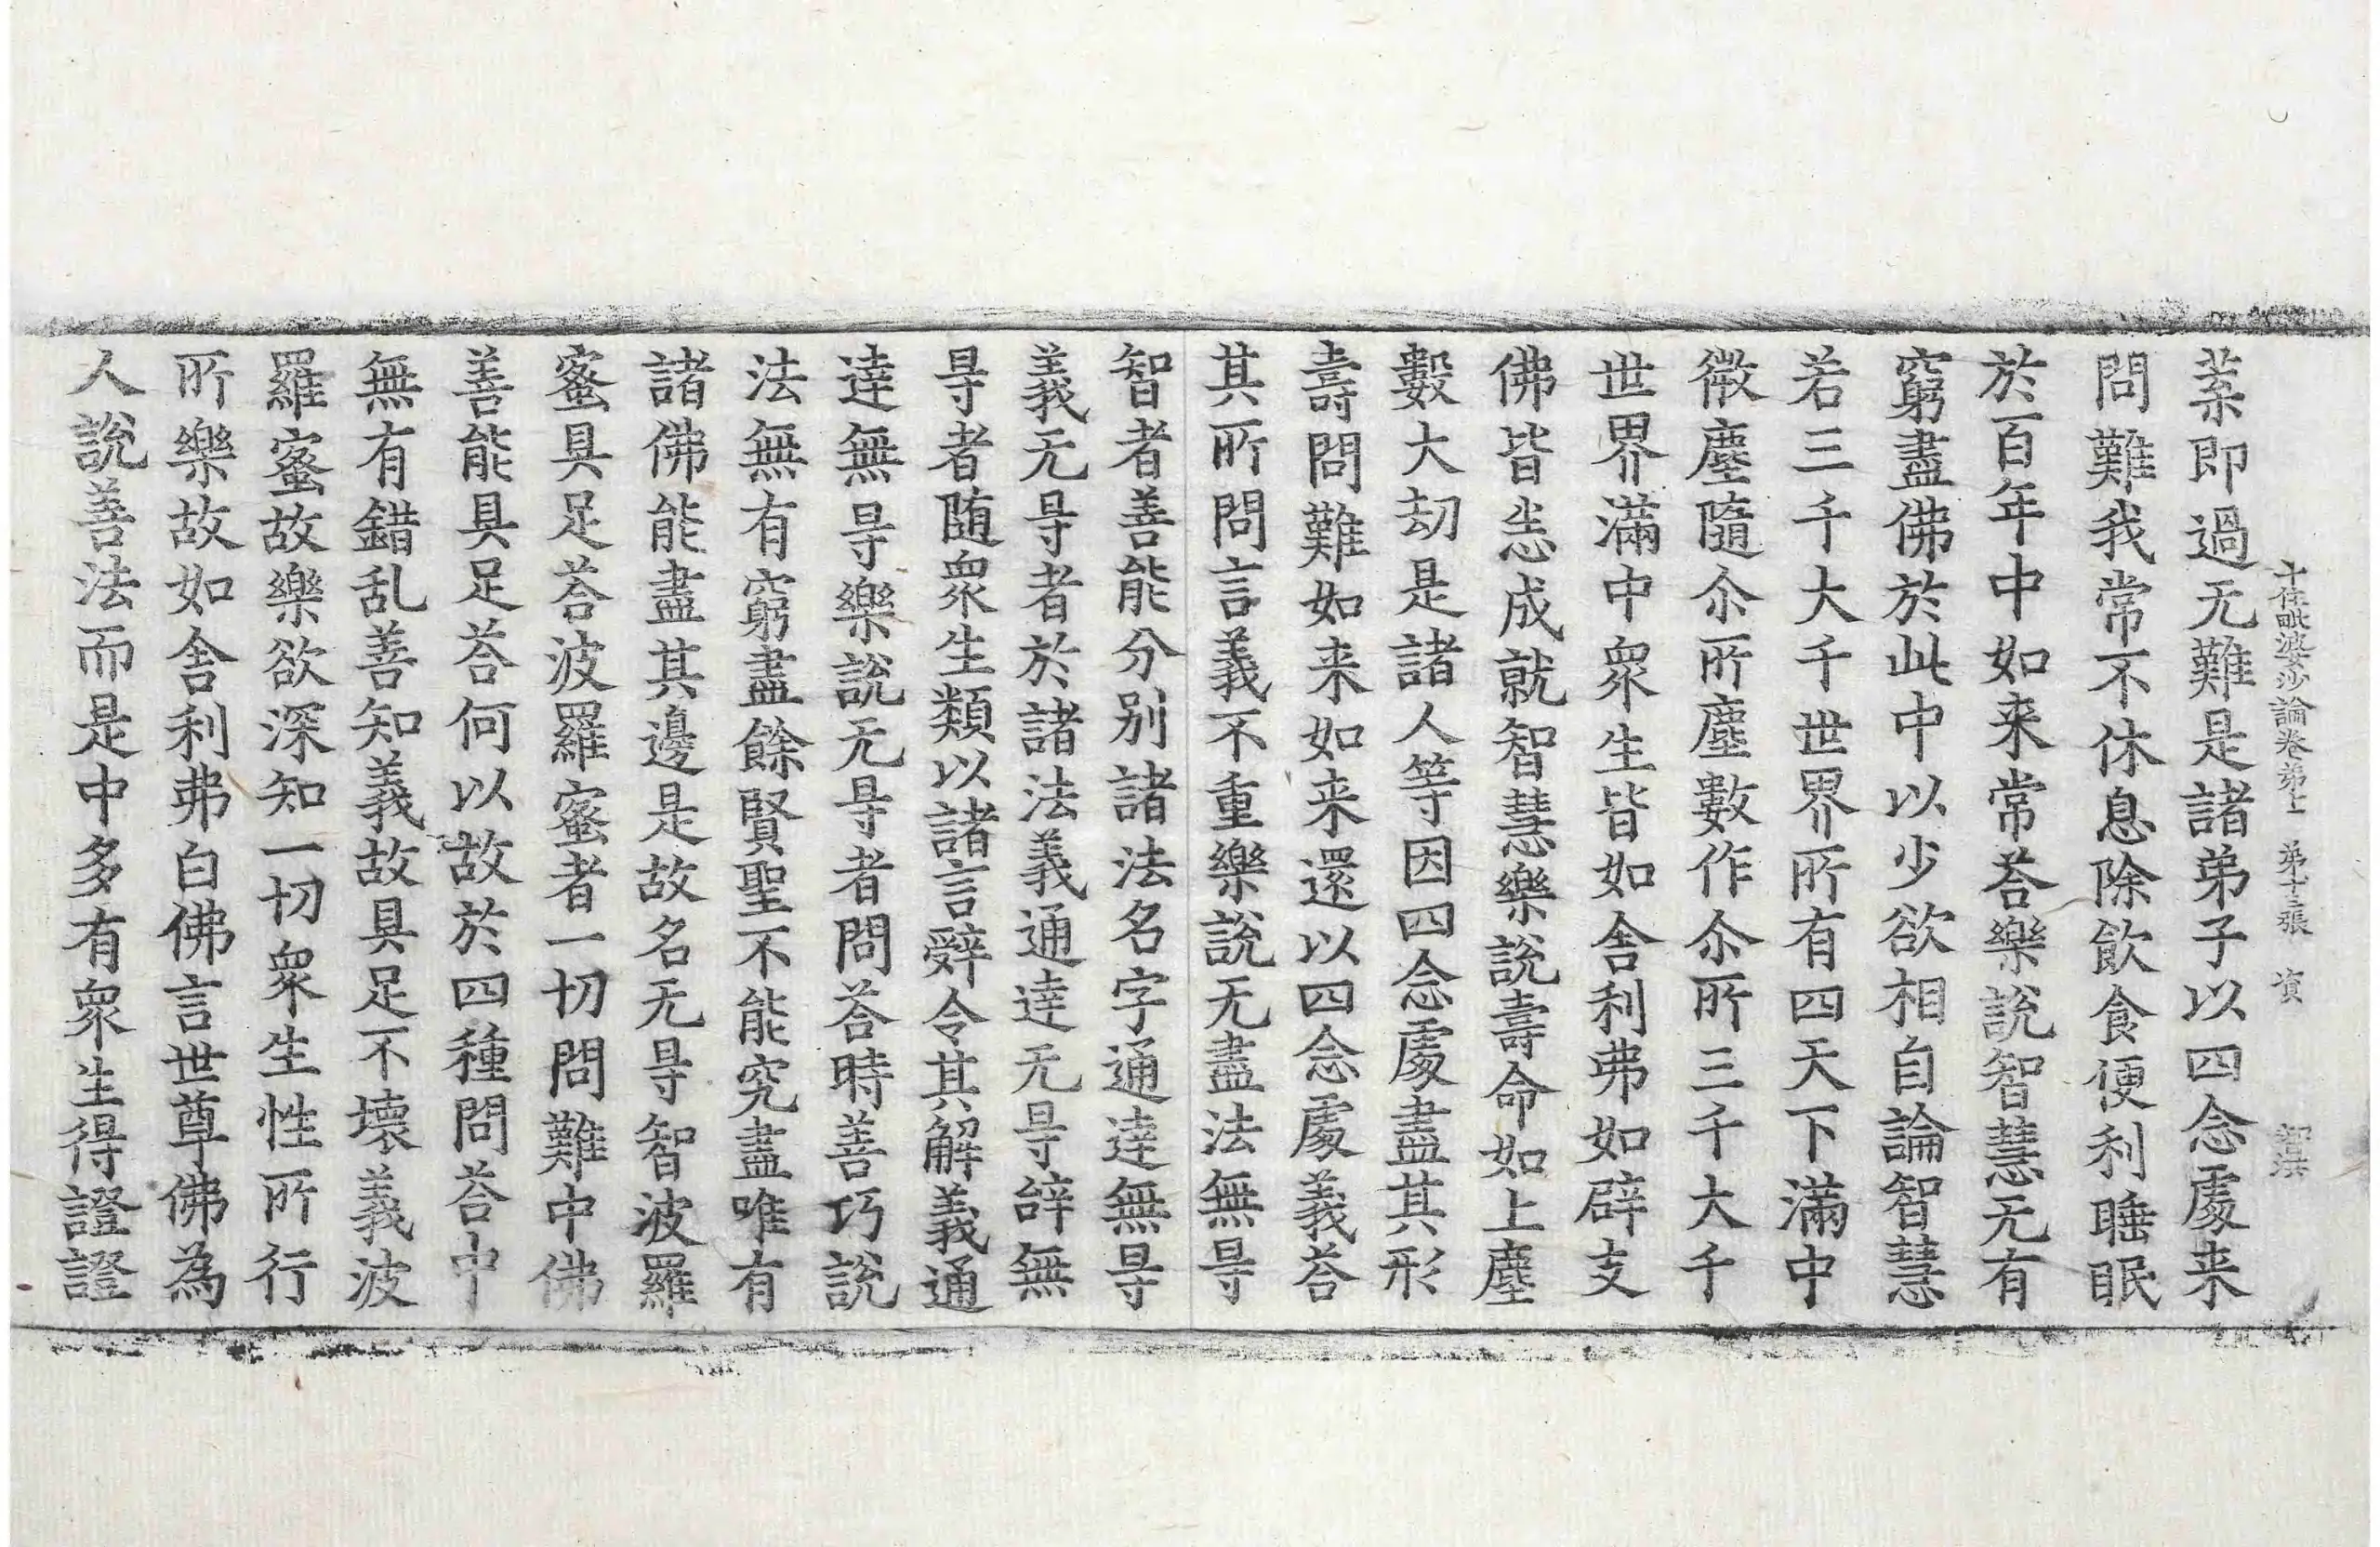 十住毗婆沙論卷第十一 第十三張 資
葉即過无難是諸弟子以四念處来
問難我常不休息除飲食便利睡眠
於百年中如来常荅樂說智慧无有
窮盡佛於此中以少欲相自論智慧
若三千大千世界所有四天下滿中
微塵隨尒所塵數作尒所三千大千
世界滿中衆生皆如舎利弗如辟支
佛皆悉成就智慧樂說壽命如上塵
數大劫是諸人等因四念處盡其形
壽問難如来如来還以四念處義荅
其所問言義不重樂說无盡法無㝵
智者善能分别諸法名字通達無㝵
義无㝵者於諸法義通達无㝵辝無
㝵者随衆生類以諸言辭令其解義通
達無㝵樂說无㝵者問荅時善巧說
法無有窮盡餘賢聖不能究盡唯有
諸佛能盡其邊是故名无㝵智波羅
蜜具足荅波羅蜜者一切問難中佛
善能具足荅何以故於四種問荅中
無有錯乱善知義故具足不壊義波
羅蜜故樂欲深知一切衆生性所行
所樂故如舎利弗白佛言世尊佛為
人說善法而是中多有衆生得證證